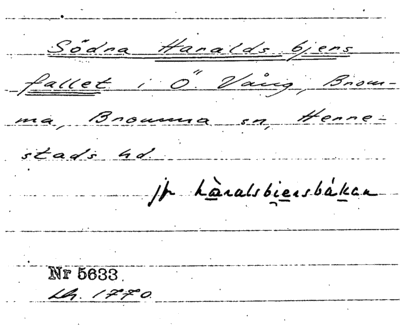 Södra Haralds bjers
fallet i Ö Vång, Brom-
ma, Bromma sn, Herre-
stads hd
jfr hàralsbjersbákan
Nr 5633
Lh. 1770.